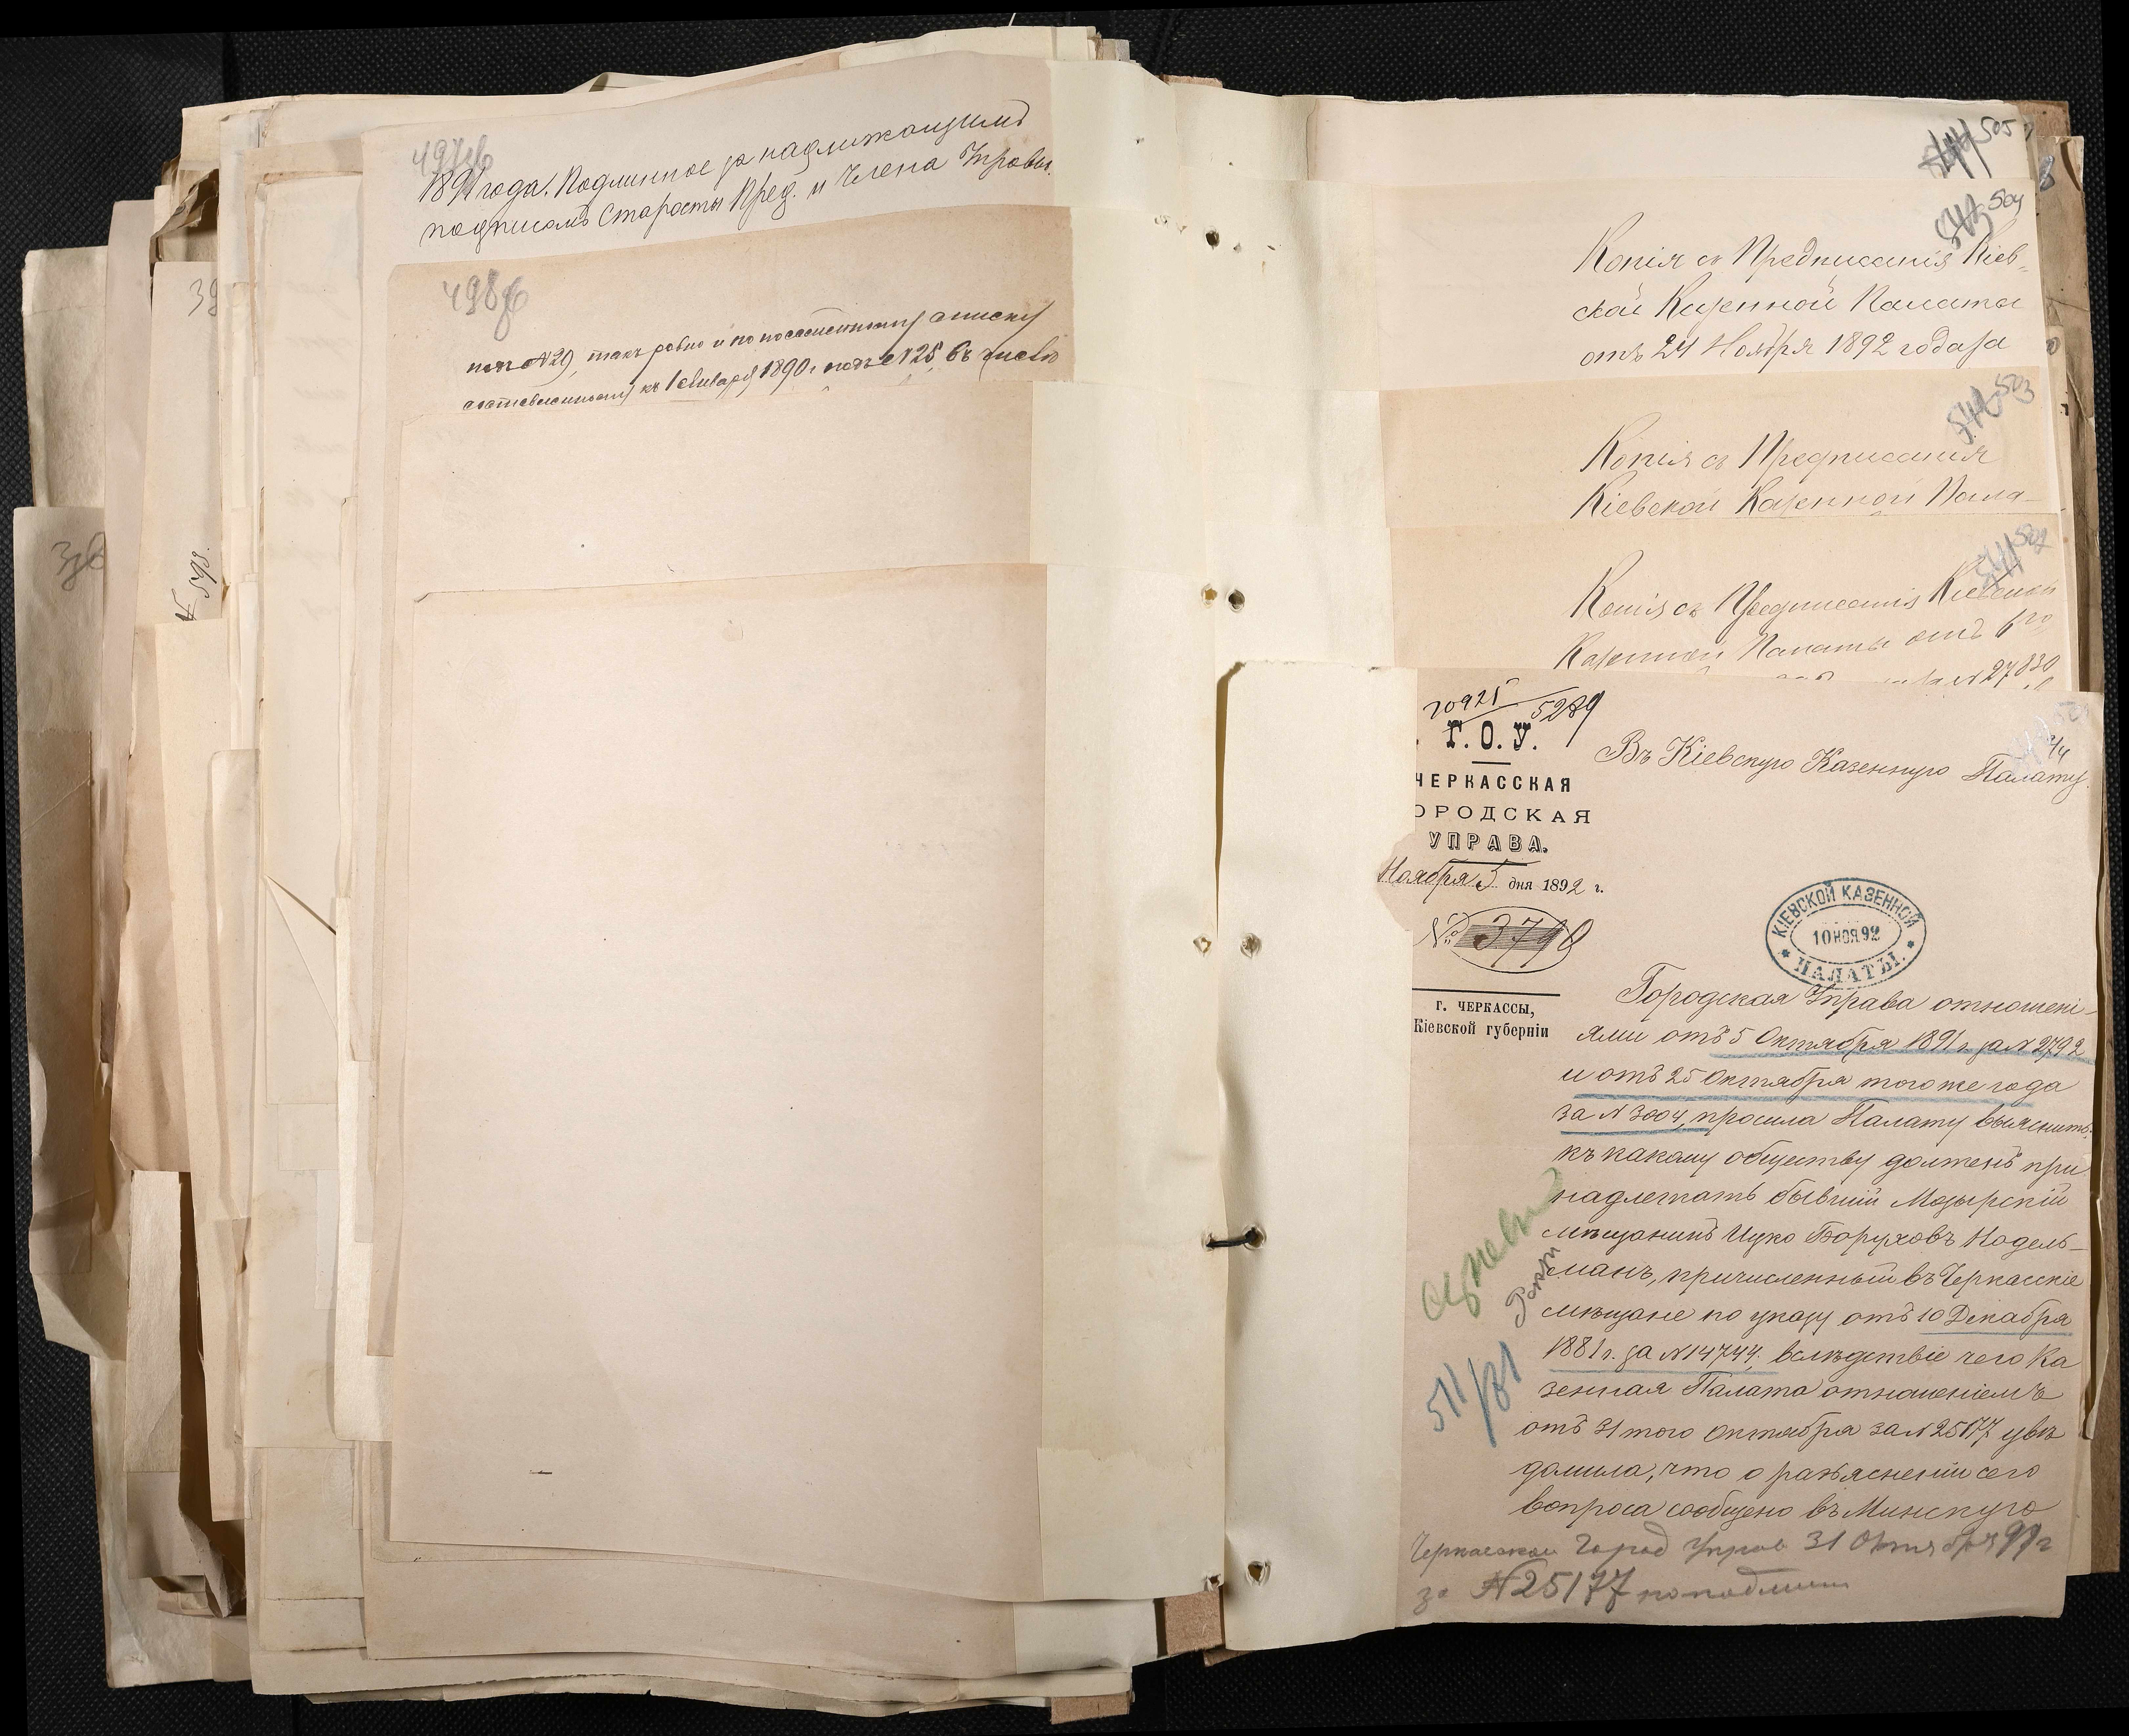 497об
1891 года. Подлинное за надлежащимъ
подписомъ Старосты Пред. и Члена Управы.
498об
подъ №29, такъ ровно и по посемейному списку
составленному къ 1 Января 1890 г. подъ №25, въ числѣ
39
598.
505
504
Копія съ Предписанія Кіев-
ской Казенной Палаты
отъ 24 Ноября 1892 года за
503
Копія съ Предписанія
Кіевской Казенной Пала-
502
Копія съ Предписанія Кіевской
Казенной Палаты отъ
за №27830
20925
5289
Г. О. У.
ЧЕРКАССКАЯ
ОРОДСКАЯ
УПРАВА.
Ноября 5 дня 1892 г.
№ 3798
г. ЧЕРКАССЫ,
Кіевской губерніи
Въ Кіевскую Казенную Палату.
КІЕВСКОЙ КАЗЕННОЙ
10 НОЯ 92
ПАЛАТЫ.
Городская Управа отношені-
ями отъ 5 Октября 1891 г. за №2792
и отъ 25 Октября того же года
за №3004, просила Палату выяснить:
къ какому обществу долженъ при
надлежать бывшій Мозырскій
мѣщанинъ Ицко Боруховъ Нодель-
манъ, причисленный въ Черкасскіе
мѣщане по указу отъ 10 Декабря
1881 г. за №14744, вслѣдствіе чего Ка
зенная Палата отношеніемъ
отъ 31 того Октября за №25177 увѣ
домила, что о разъясненіи сего
вопроса сообщено въ Минскую
511/81
Черкасской Город Управ 31 Октября 91 г
за №25177